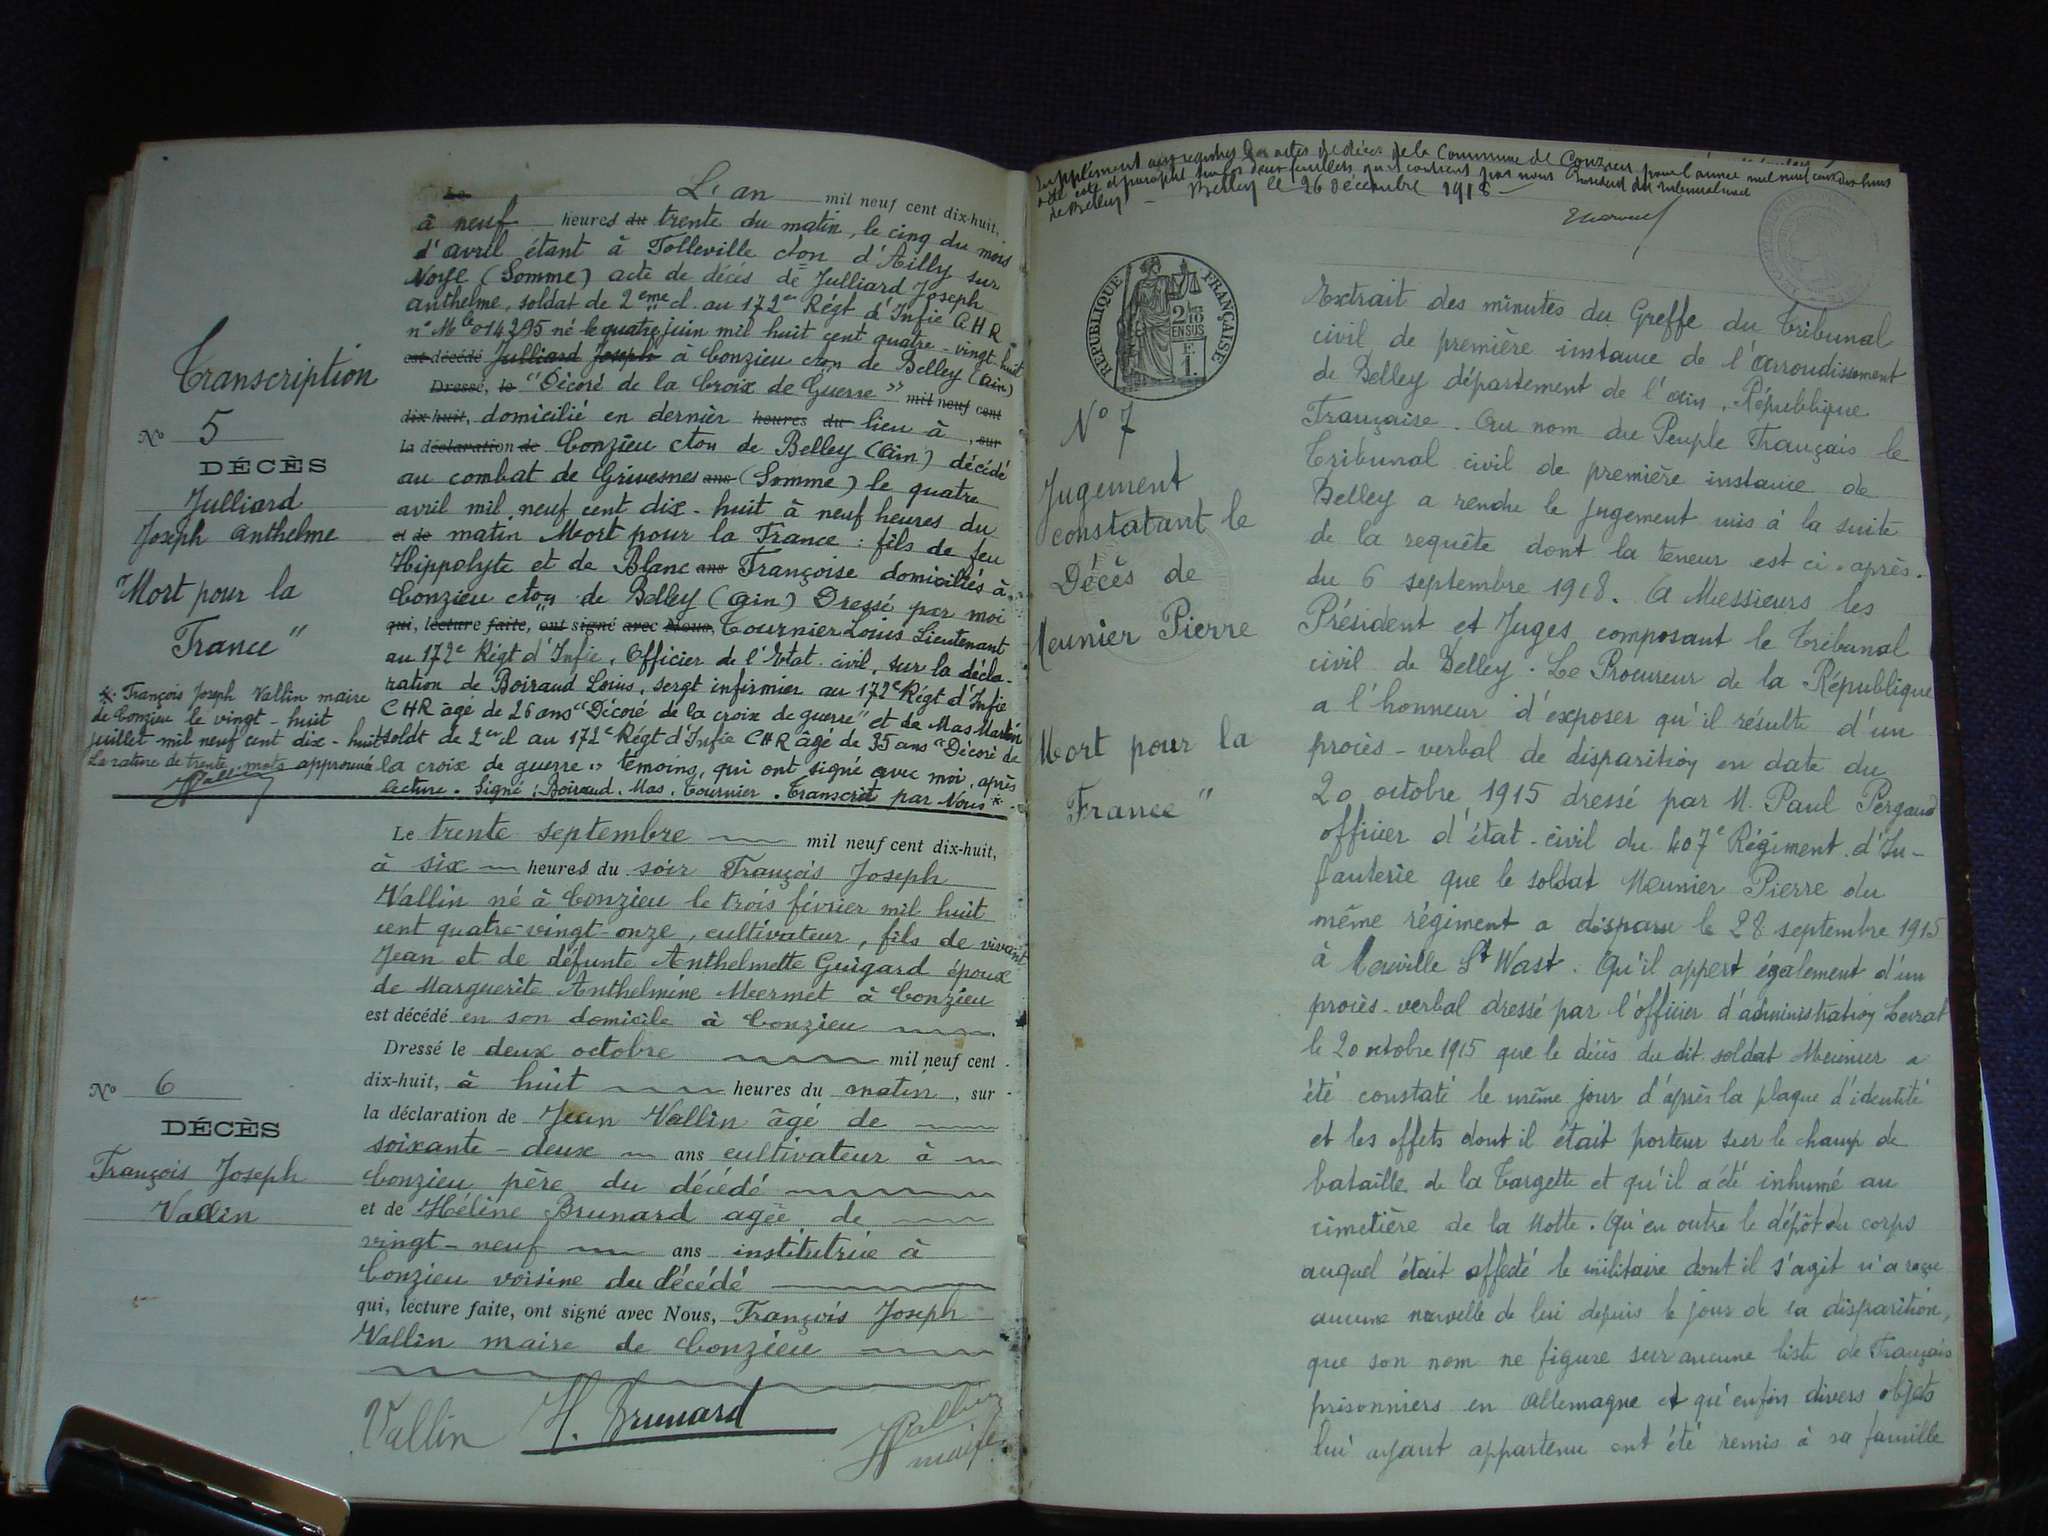 Transcription
N° 5
DÉCÈS
Julliard
Joseph Anthelme
"Mort pour la
France"
L'an mil neuf cent dix-huit,
à neuf heures du trente du matin, le cinq du mois
d'avril étant à Tolleville cton d'Ailly sur
Noye (Somme) acte de décès de Julliard Joseph
Anthelme, soldat de 2eme cl. au 172e Régt d'Infie CHR
n° Mle 014295 né le quatre juin mil huit cent quatre-vingt huit
est décédé Julliard Joseph à Conzieu cton de Belley (Ain)
Dressé, le "Décoré de la Croix de Guerre" mil neuf cent
dix-huit, domicilié en dernier heures du lieu à, sur
la déclaration de Conzieu cton de Belley (Ain) décédé
au combat de Grivesnes ans (Somme) le quatre
avril mil neuf cent dix-huit à neuf heures du
et de matin Mort pour la France : fils de feu
Hippolyte et de Blanc ans Françoise domiciliés à
Conzieu cton de Belley (Ain) Dressé par moi
qui, lecture faite, ont signé avec Nous, Tournier Louis Lieutenant
au 172e Régt d'Infie, Officier de l'Etat-civil, sur la décla-
ration de Boiraud Louis, sergt infirmier au 172e Régt d'Infie
CHR âgé de 26 ans "Décoré de la croix de guerre" et de Mas Martin
soldt de 2e cl au 172e Régt d'Infie CHR âgé de 35 ans "Décoré de
la croix de guerre" témoins, qui ont signé avec moi, après
lecture. Signé : Boiraud. Mas. Tournier. Transcrit par Nous *
* François Joseph Vallin maire
de Conzieu le vingt-huit
juillet mil neuf cent dix-huit
La rature de trente mots approuvée
JVallin
N° 6
DÉCÈS
François Joseph
Vallin
Le trente septembre mil neuf cent dix-huit,
à six heures du soir François Joseph
Vallin né à Conzieu le trois février mil huit
cent quatre-vingt-onze, cultivateur, fils de vivant
Jean et de défunte Anthelmette Guigard époux
de Marguerite Anthelmine Mermet à Conzieu
est décédé en son domicile à Conzieu
Dressé le deux octobre mil neuf cent
dix-huit, à huit heures du matin, sur
la déclaration de Jean Vallin âgé de
soixante-deux ans cultivateur à
Conzieu père du décédé
et de Hélène Brunard agée de
vingt-neuf ans institutrice à
Conzieu voisine du décédé
qui, lecture faite, ont signé avec Nous, François Joseph
Vallin maire de Conzieu
Vallin H. Brunard JVallin
maire
Supplément aux registres des actes de décès de la Commune de Conzieu pour l'année mil neuf cent dix huit
coté et paraphé par nous Président du tribunal civil
de Belley - Belley le 26 décembre 1918
RÉPUBLIQUE FRANÇAISE
2/10 EN SUS
F. 1.
N° 7
Jugement
constatant le
Décès de
Meunier Pierre
Mort pour la
France"
Extrait des minutes du Greffe du Tribunal
civil de première instance de l'arrondissement
de Belley département de l'ain, République
Française. Au nom du Peuple Français le
Tribunal civil de première instance de
Belley a rendu le jugement mis à la suite
de la requête dont la teneur est ci-après.
du 6 septembre 1918. A Messieurs les
Président et Juges composant le Tribunal
civil de Belley. Le Procureur de la République
a l'honneur d'exposer qu'il résulte d'un
procès-verbal de disparition en date du
20 octobre 1915 dressé par M. Paul Pergaud
officier d'état-civil du 407e Régiment d'In-
fanterie que le soldat Meunier Pierre du
même régiment a disparu le 28 septembre 1915
à Neuville St Wast. Qu'il appert également d'un
procès-verbal dressé par l'officier d'administration Levrat
le 20 octobre 1915 que le décès du dit soldat Meunier a
été constaté le même jour d'après la plaque d'identité
et les effets dont il était porteur sur le champ de
bataille de la Targette et qu'il a été inhumé au
cimetière de la Motte. Qu'en outre le dépôt du corps
auquel était affecté le militaire dont il s'agit n'a reçu
aucune nouvelle de lui depuis le jour de sa disparition,
que son nom ne figure sur aucune liste de Français
prisonniers en Allemagne et qu'enfin divers objets
lui ayant appartenu ont été remis à sa famille